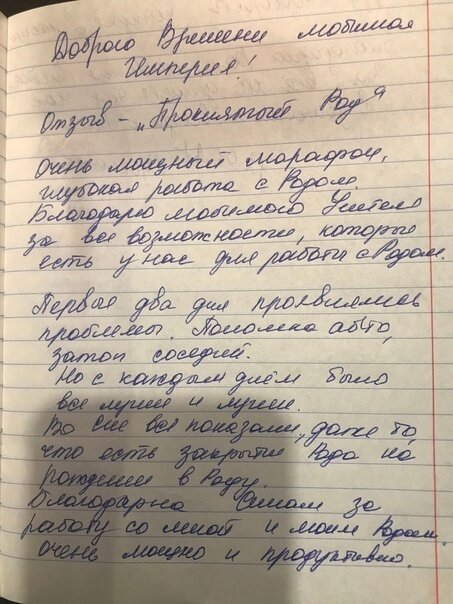 Доброго Времени любимая
Империя!
Отзыв - „Проклятый Род"
Очень мощный марафон,
глубокая работа с Родом.
Благодарю любимого Учителя
за все возможности, которые
есть у нас для работы с Родом.
Первые два дня проявлялись
проблемы. Поломка авто,
затоп соседей.
Но с каждым днём было
все лучше и лучше.
Во сне все показали, даже то,
что есть закрытие Рода на
рождение в Роду.
Благодарна Силам за
работу со мной и моим Родом.
Очень мощно и продуктивно.